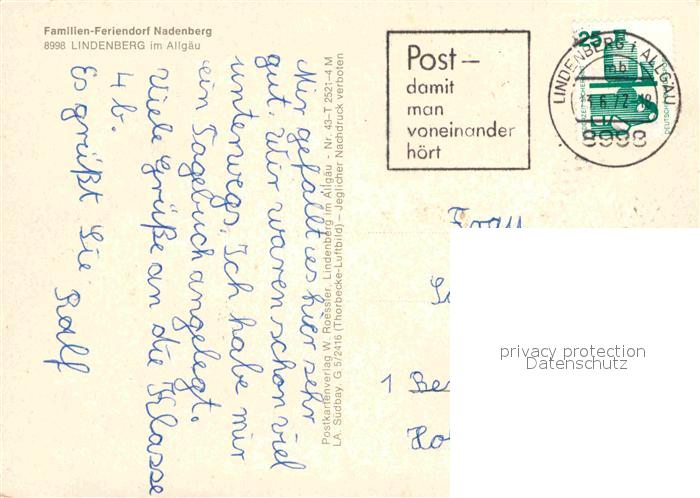 Familien-Feriendorf Nadenberg
8998 LINDENBERG im Allgäu
Mir gefällt es hier sehr
gut. Wir waren schon viel
unterwegs. Ich habe mir
ein Tagebuch angelegt.
Viele Grüße an die Klasse
4b.
Es grüßt Sie Ralf
Postkartenverlag W. Roessler, Lindenberg im Allgäu - Nr. 43-T 2521-4 M
LA. Südbay. G 5/2416 (Thorbecke-Luftbild) - Jeglicher Nachdruck verboten
Post –
damit
man
voneinander
hört
25
LINDENBERG i ALLGÄU
8998
Frau
1 Be
privacy protection
Datenschutz